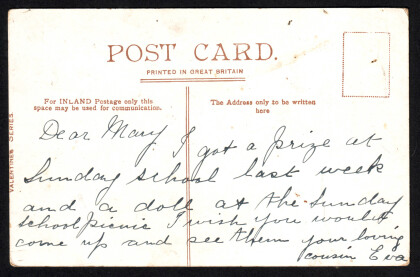 POST CARD.
PRINTED IN GREAT BRITAIN
For INLAND Postage only this
space may be used for communication.
The Address only to be written
here
VALENTINES SERIES
Dear Mary
I got a prize at
Sunday school last week
and a doll at the Sunday
school picnic I wish you would
come up and see them your loving
cousin Eva